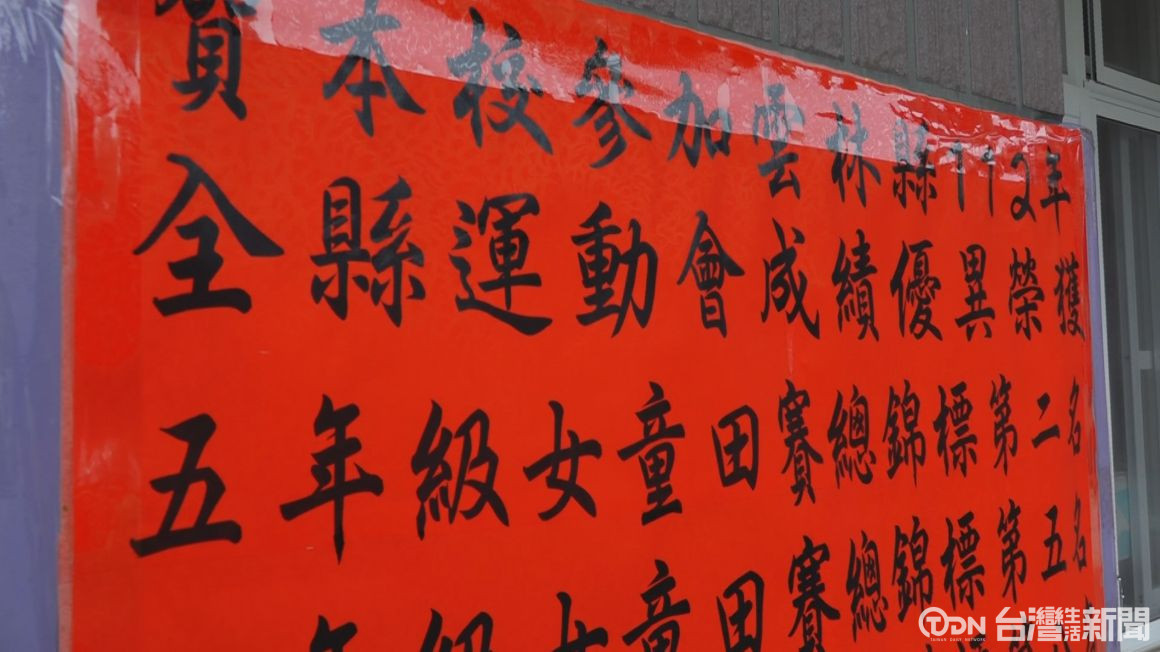 賀本校參加雲林縣112年
全縣運動會成績優異榮獲
五年級女童田賽總錦標第二名
年級女童田賽總錦標第五名
TDN 台灣生活新聞
TAIWAN DIGIT NETWORK